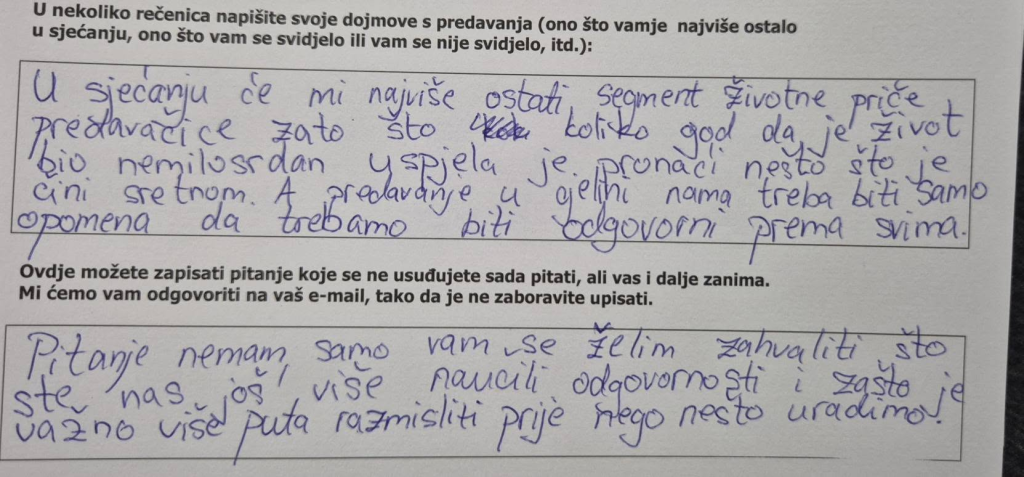 U nekoliko rečenica napišite svoje dojmove s predavanja (ono što vamje najviše ostalo
u sjećanju, ono što vam se svidjelo ili vam se nije svidjelo, itd.):
U sjećanju će mi najviše ostati segment životne priče
predavačice zato što koliko god da je život
bio nemilosrdan uspjela je pronaći nešto što je
čini sretnom. A predavanje u cjelini nama treba biti samo
opomena da trebamo biti odgovorni prema svima.
Ovdje možete zapisati pitanje koje se ne usuđujete sada pitati, ali vas i dalje zanima.
Mi ćemo vam odgovoriti na vaš e-mail, tako da je ne zaboravite upisati.
Pitanje nemam, samo vam se želim zahvaliti što
ste nas još više naučili odgovornosti i zašto je
važno više puta razmisliti prije nego nešto uradimo!